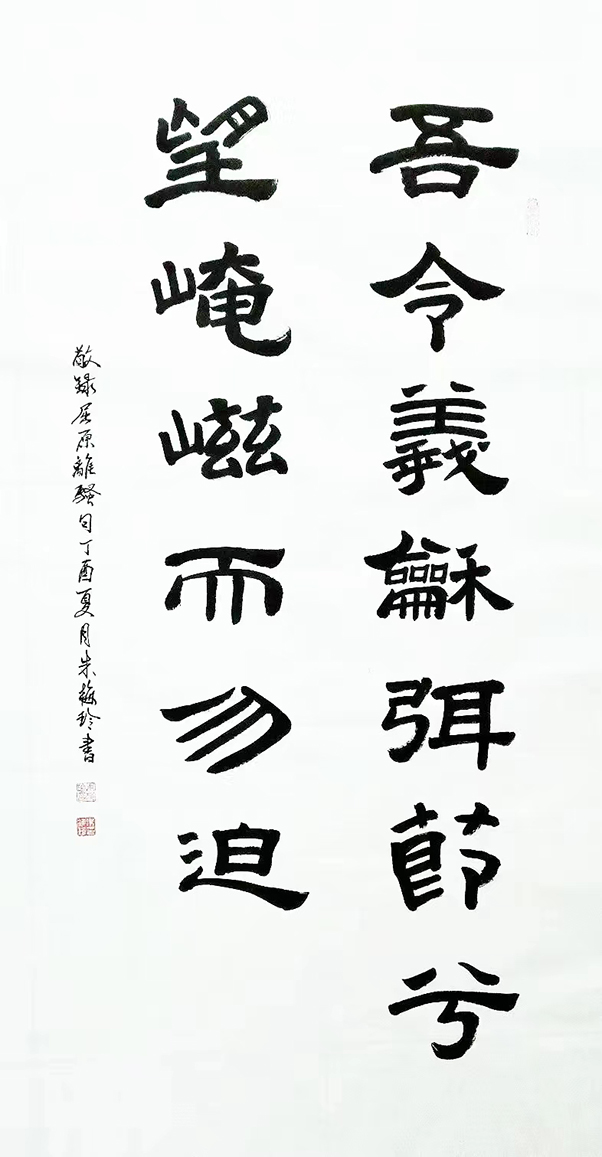 吾令羲龢弭節兮
望崦嵫而勿迫
敬録屈原離騷句丁酉夏月朱梅玲書